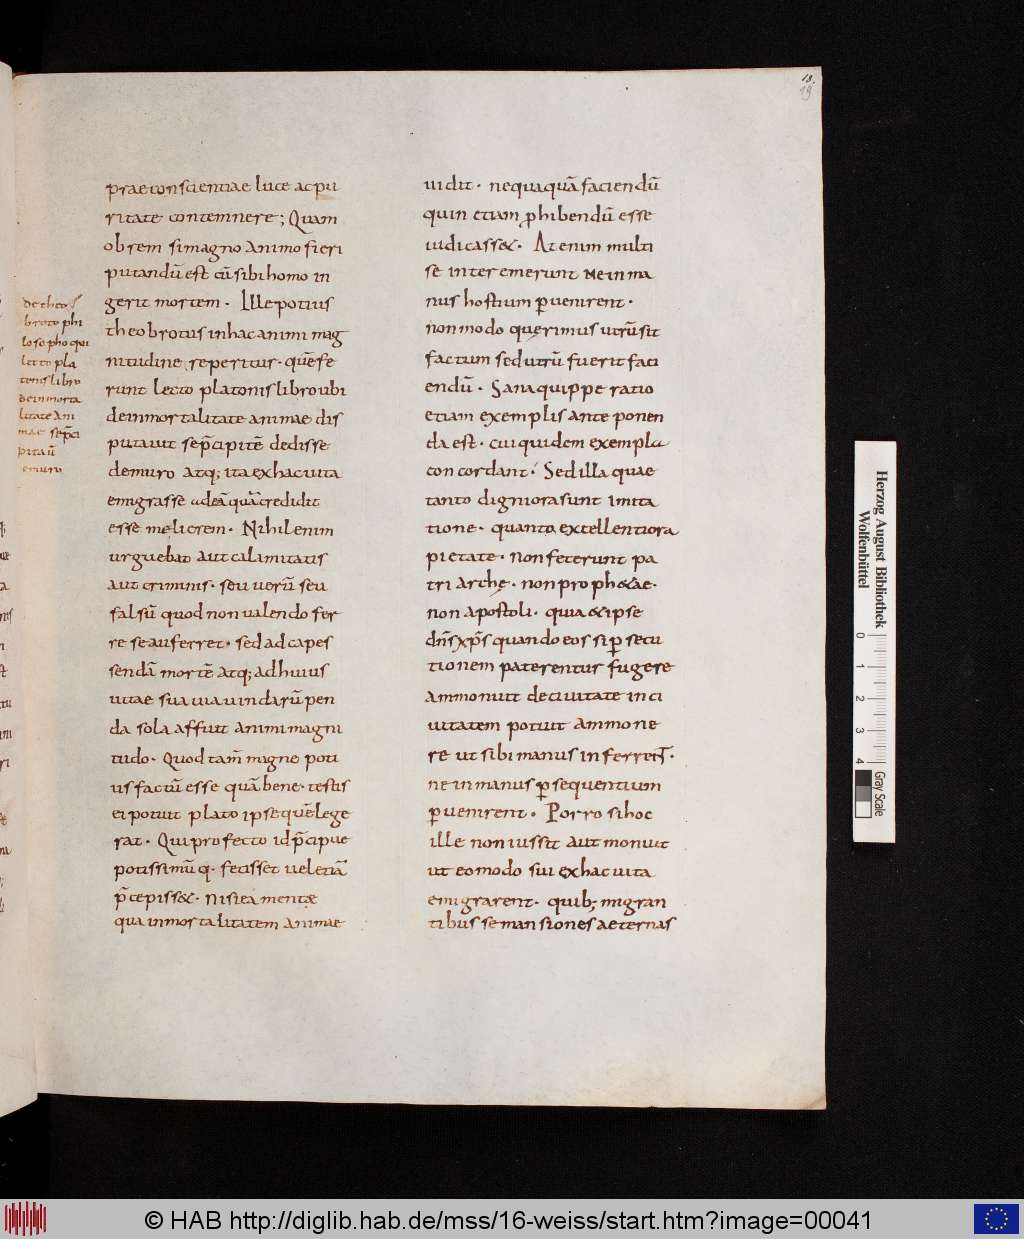 18.
19
praeconscientiae luce ac pu
ritate contemnere; Quam
obrem si magno animo fieri
putandū est cū sibi homo in
gerit mortem · Ille potius
theobrotus in hac animi mag
nitudine reperitur · quē fe
runt lecto platonis libro ubi
de inmortalitate animae dis
putauit se p̄cipitē dedisse
de muro atq; ita ex hac uita
emigrasse adeā quā credidit
esse meliorem · Nihil enim
urguebat aut calamitatis
aut criminis · seu uerū seu
falsū quod non ualendo fer
re se auferret · sed ad capes
sendā mortē atq; ad huius
uitae suauia uincla rūpen
da sola affuit animi magni
tudo · Quod tam̄ magne poti
us factū esse quā bene · testis
ei potuit plato ipse quē lege
rat · Qui profecto id p̄cipue
potissimū q · fecisset uel etiā
p̄cepiss& · nisi ea mentae
qua inmortalitatem animae
de theo
broto phi
losopho qui
lecto pla
tonis libro
de inmorta
litate ani
mae se p̄ci
pitauit
e muro
uidit · nequaquā faciendū
quin etiam ꝓhibendū esse
iudicass& · At enim multi
se interemerunt ne in ma
nus hostium ꝑuenirent ·
non modo querimus utrū sit
factum sed utrū fuerit faci
endū · Sana quippe ratio
etiam exemplis anteponen
da est · cui quidem exempla
concordant · Sed illa quae
tanto digniora sunt imita
tione · quanto excellentiora
pietate · non fecerunt pa
triarche · non proph&ae ·
non apostoli · quia & ipse
dn̄s xp̄s quando eos si ꝑsecu
tionem paterentur fugere
ammonuit de ciuitate in ci
uitatem potuit ammone
re ut sibi manus inferrent ·
ne in manus ꝑsequentium
ꝑuenirent · Porro si hoc
ille non iussit aut monuit
ut eo modo sui ex hac uita
emigrarent · quib; migran
tibus se mansiones aeternas
Herzog August Bibliothek
Wolfenbüttel
0 1 2 3 4
Gray Scale
© HAB http://diglib.hab.de/mss/16-weiss/start.htm?image=00041